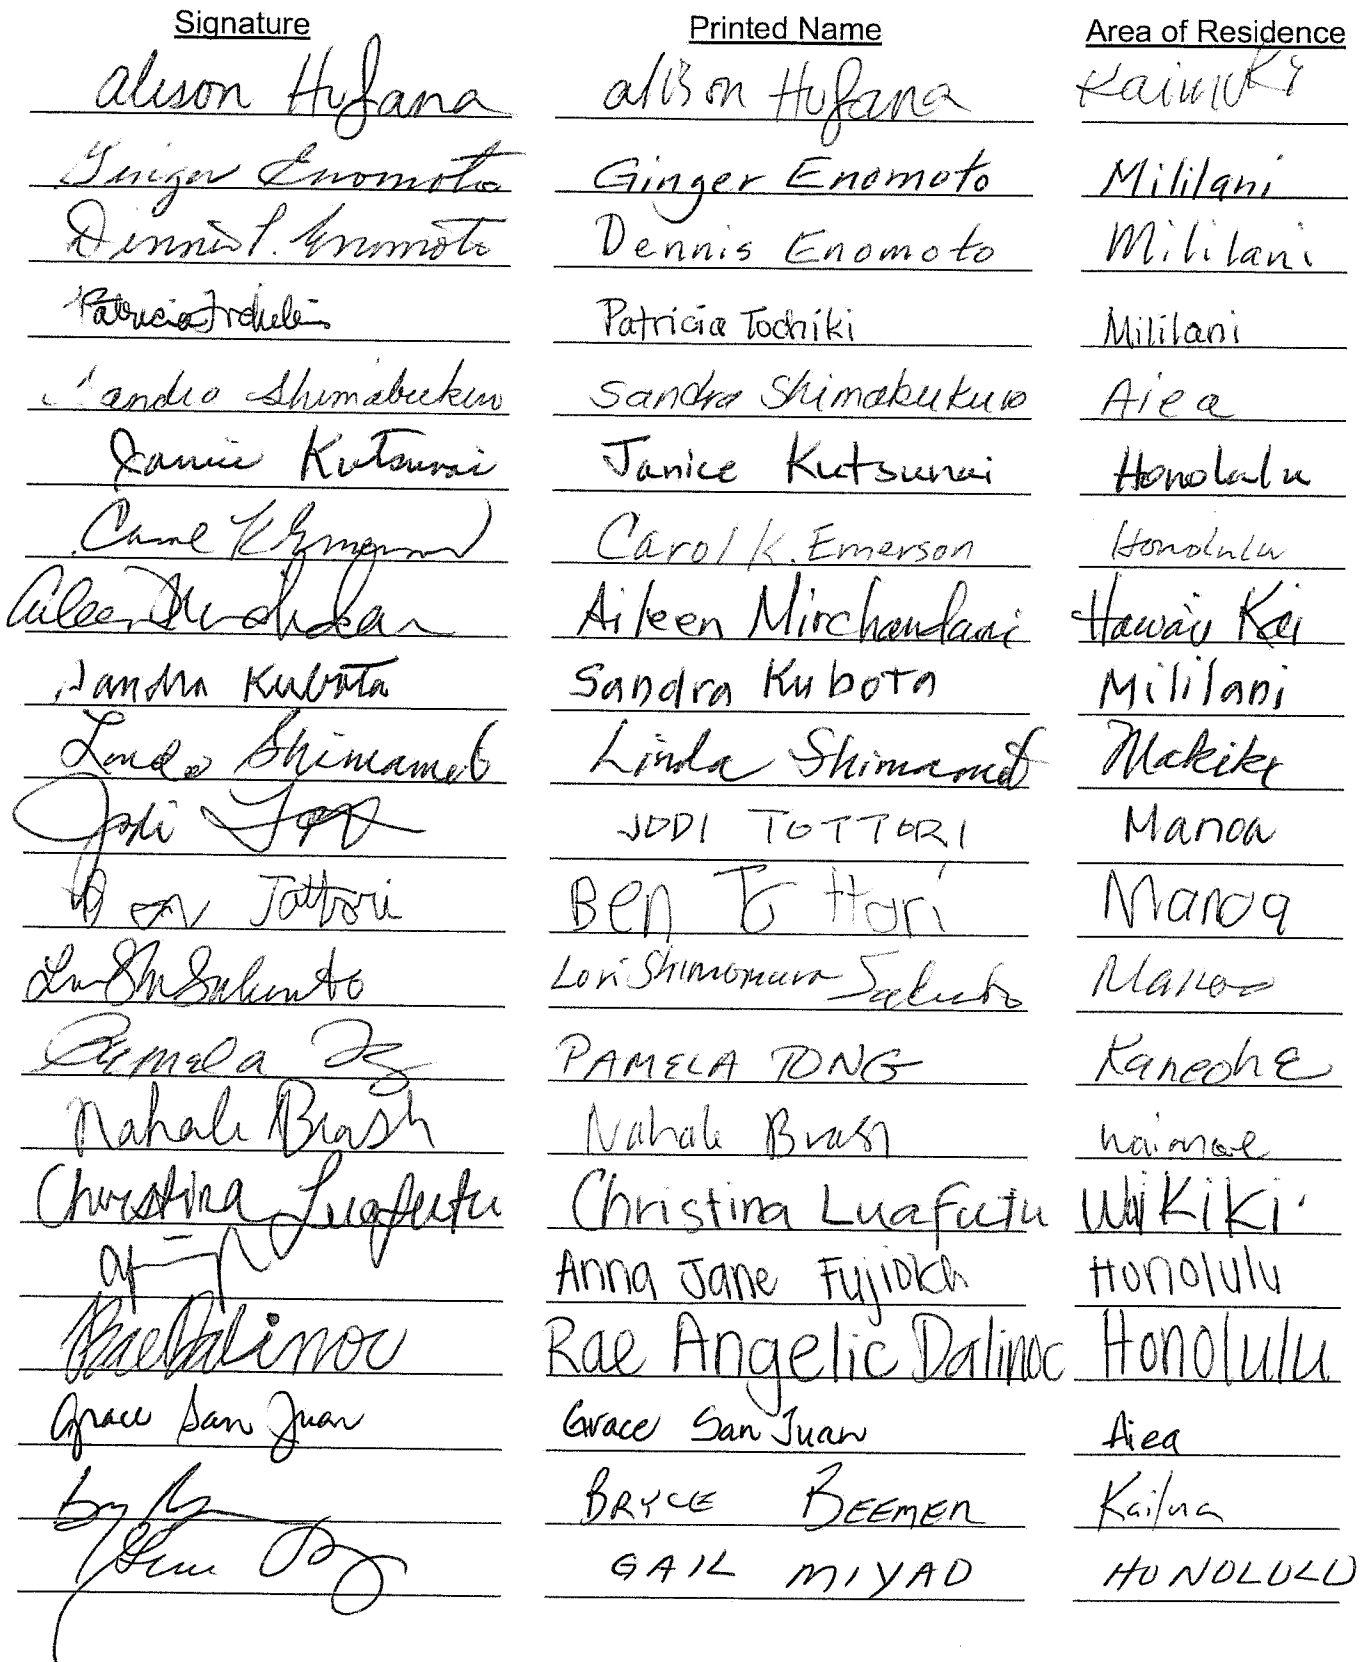 Signature Printed Name Area of Residence
Alison Hufana Alison Hufana Kaimuki
Ginger Enomoto Ginger Enomoto Mililani
Dennis T. Enomoto Dennis Enomoto Mililani
Patricia Tochiki Patricia Tochiki Mililani
Sandra Shimabukuro Sandra Shimabukuro Aiea
Janice Kutsunai Janice Kutsunai Honolulu
Carol K Emerson Carol K. Emerson Honolulu
Aileen Mirchandani Aileen Mirchandani Hawaii Kai
Sandra Kubota Sandra Kubota Mililani
Linda Shimamoto Linda Shimamoto Makiki
Jodi JODI TOTTORI Manoa
Ben Tottori Ben Tottori Manoa
Lori Shimomura Sakuoto Manoa
Pamela PAMELA TONG Kaneohe
Nahale Brash Nahale Brash
Christina Luafutu Christina Luafutu Waikiki
Anna Jane Fujioka Honolulu
Rae Dalinoc Rae Angelic Dalinoc Honolulu
Grace San Juan Grace San Juan Aiea
BRYCE BEEMER Kailua
GAIL MIYAO HONOLULU